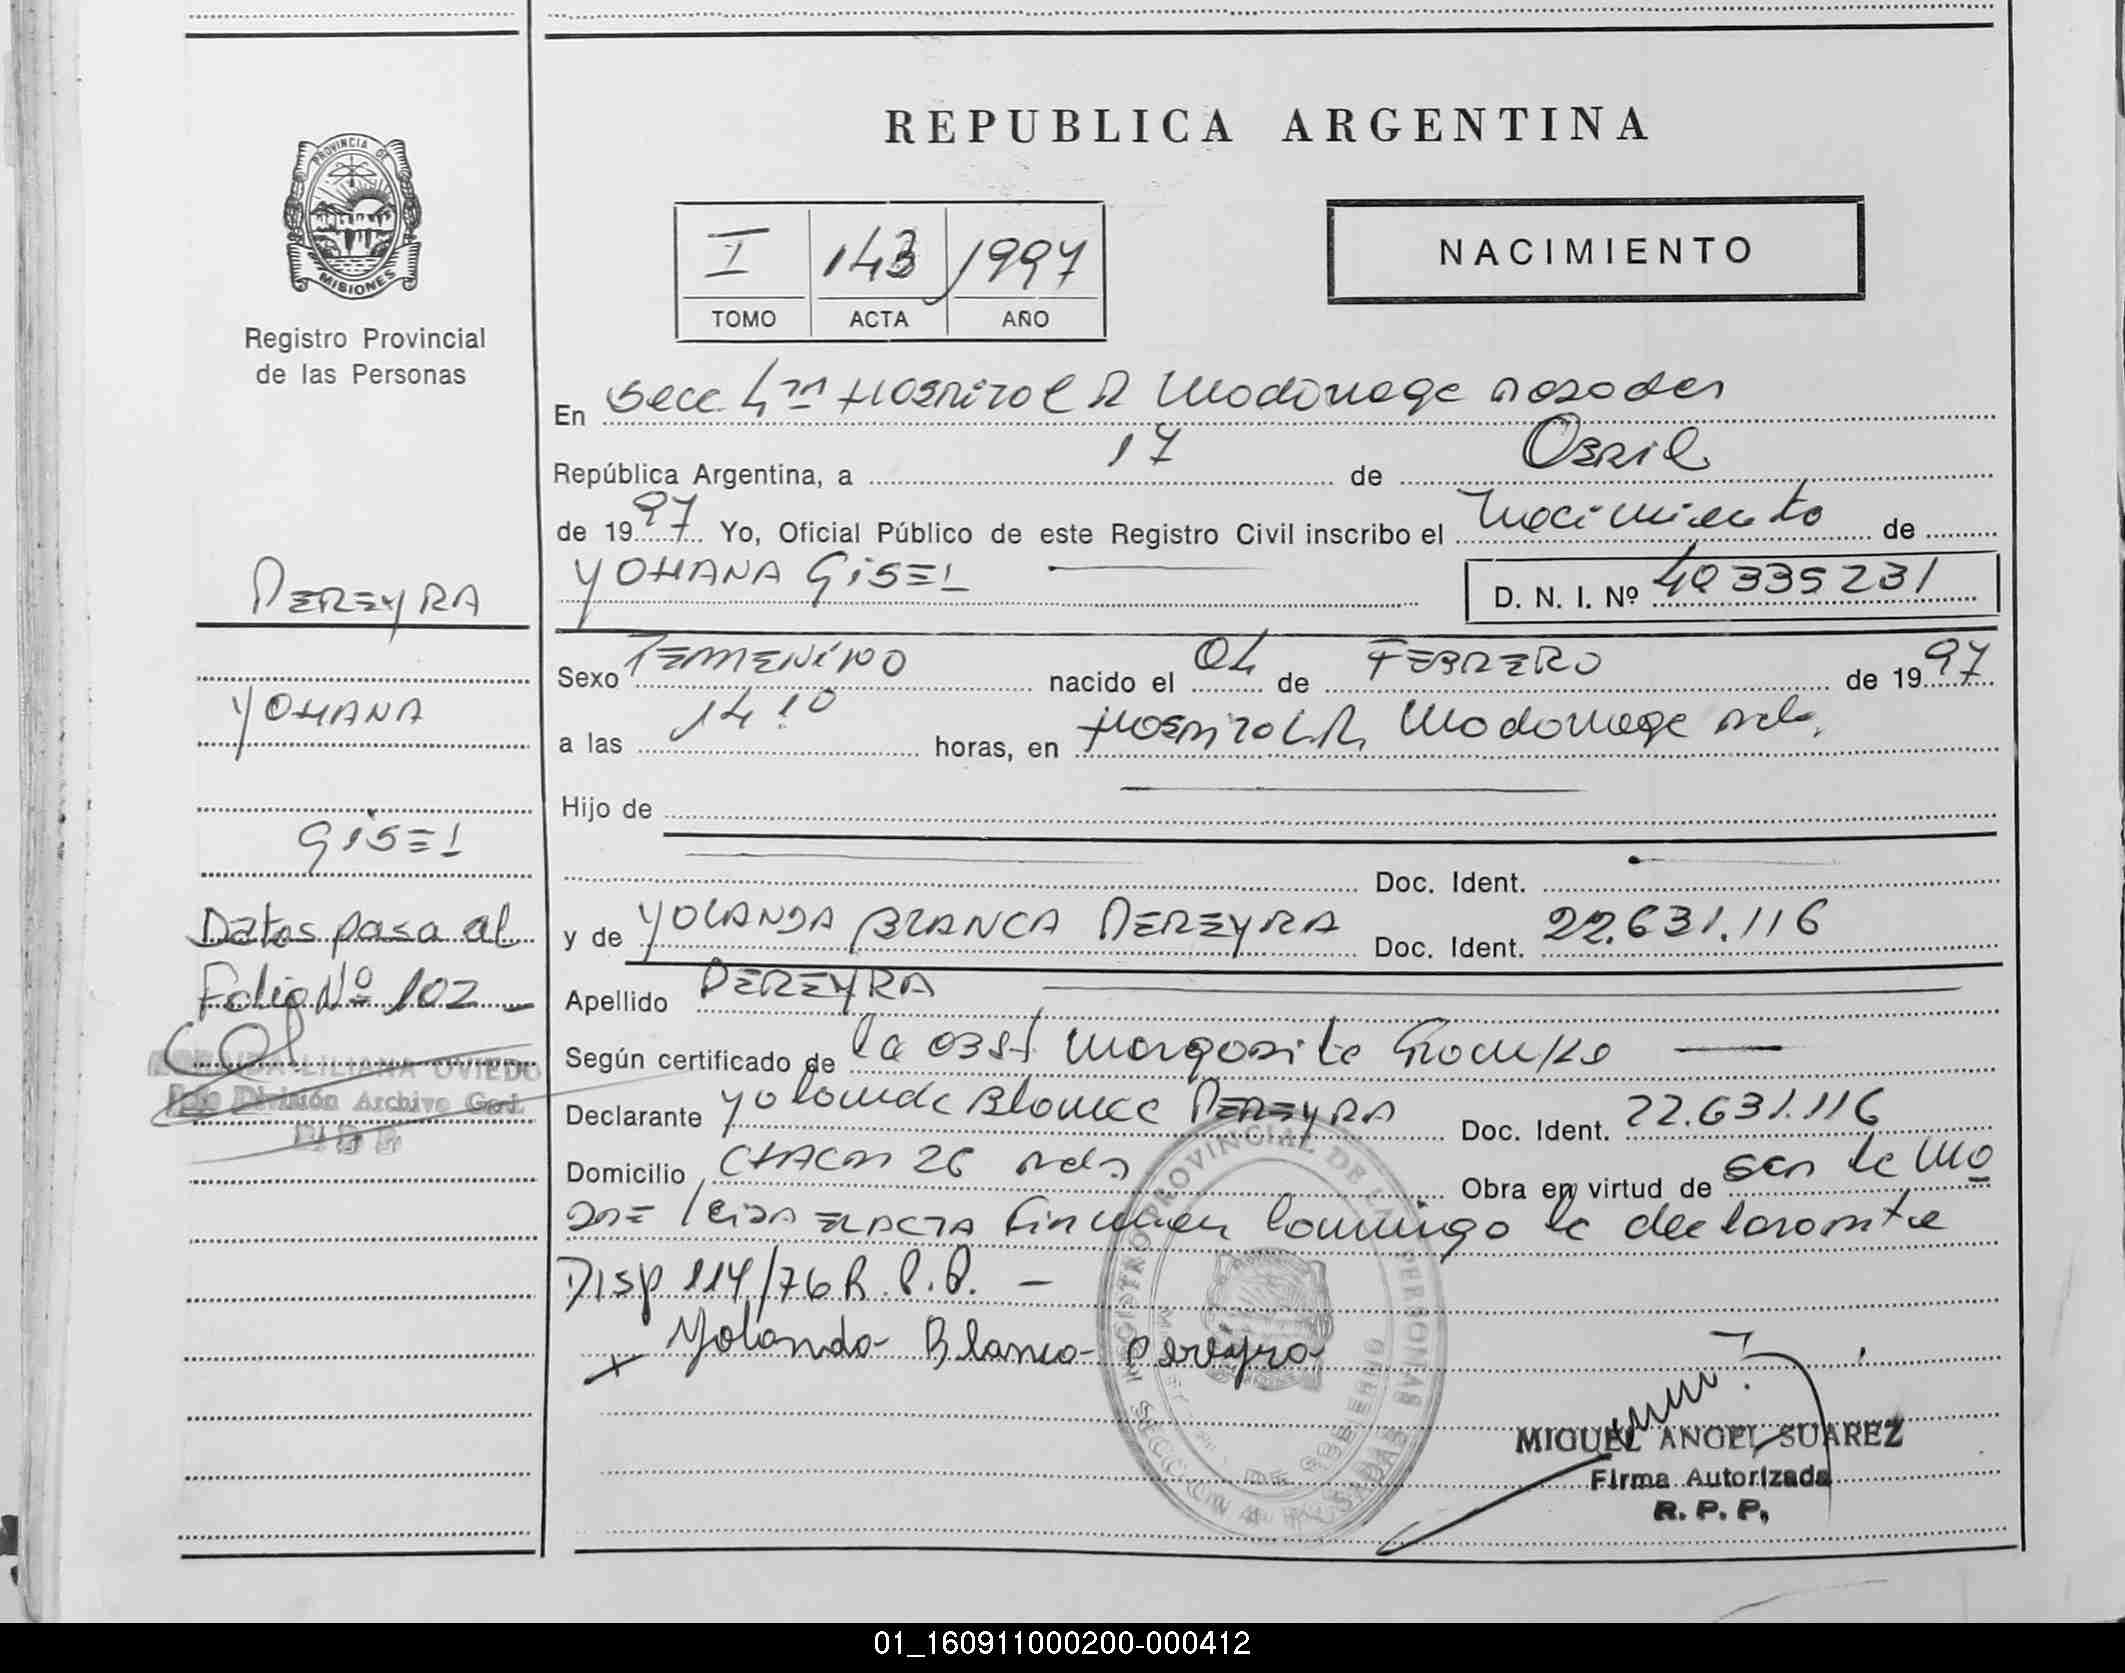 REPUBLICA ARGENTINA
PROVINCIA DE
MISIONES
Registro Provincial
de las Personas
I 143 1997
TOMO ACTA AÑO
NACIMIENTO
En Secc 4ta Hospital R Madonage Posadas
República Argentina, a 17 de Abril
de 1997 Yo, Oficial Público de este Registro Civil inscribo el Nacimiento de
YOHANA GISEL D. N. I. Nº 40335231
PEREYRA
YOHANA
GISEL
Datos pasa al
Folio Nº 102
LILIANA OVIEDO
División Archivo Gral.
Sexo FEMENINO nacido el 04 de FEBRERO de 1997
a las 14 10 horas, en Hospital R. Madonage Pdas.
Hijo de
Doc. Ident.
y de YOLANDA BLANCA PEREYRA Doc. Ident. 22.631.116
Apellido PEREYRA
Según certificado de la Obst Margarita
Declarante Yolanda Blanca PEREYRA Doc. Ident. 22.631.116
Domicilio CHACRA 26 Pdas Obra en virtud de ser la ma
dre leida EL ACTA Firman conmigo la declarante
Disp 114/76 R.P.P. -
x Yolanda Blanca Pereyra
REGISTRO PROVINCIAL DE LAS PERSONAS
SECCION 4 POSADAS
DE GOBIERNO
MIGUEL ANGEL SUAREZ
Firma Autorizada
R. P. P.
01_160911000200-000412